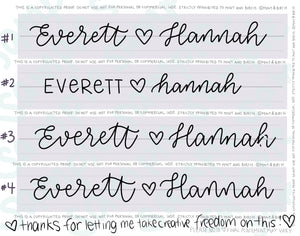 THIS IS A COPYRIGHTED PROOF. DO NOT USE. NOT FOR PERSONAL OR COMMERCIAL USE. STRICTLY PROHIBITED TO PRINT AND SHARE.
#1 Everett ♡ Hannah
THIS IS A COPYRIGHTED PROOF. DO NOT USE. NOT FOR PERSONAL OR COMMERCIAL USE. STRICTLY PROHIBITED TO PRINT AND SHARE.
#2 EVERETT ♡ hannah
THIS IS A COPYRIGHTED PROOF. DO NOT USE. NOT FOR PERSONAL OR COMMERCIAL USE. STRICTLY PROHIBITED TO PRINT AND SHARE.
#3 Everett ♡ Hannah
THIS IS A COPYRIGHTED PROOF. DO NOT USE. NOT FOR PERSONAL OR COMMERCIAL USE. STRICTLY PROHIBITED TO PRINT AND SHARE.
#4 Everett ♡ Hannah
♡ thanks for letting me take creative freedom on this ♡